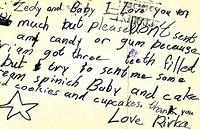 Zedy and Baby I love you ven
much but please Don't sent
any candy or gum because
rian got three teeth filled
but try to sent me some
ream spinich Baby and cake
d cookies and cupcakes thank you
Love Rivka